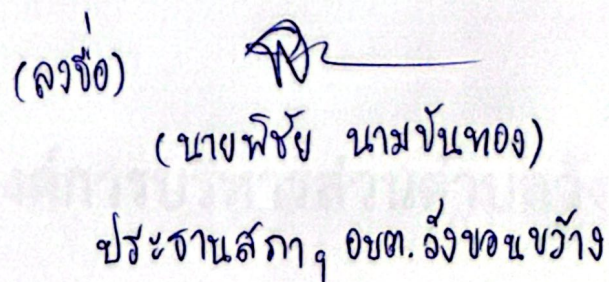 (ลงชื่อ)
(นายพิชัย นามขันทอง)
ประธานสภาฯ อบต.วังขอนขว้าง